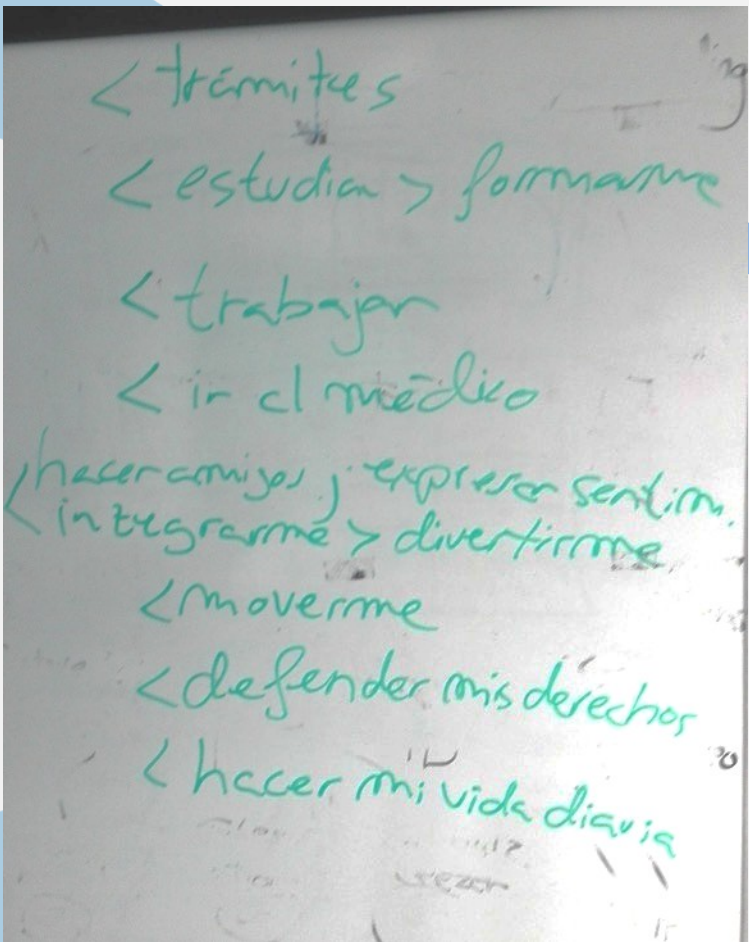 < trámites
< estudiar > formarme
< trabajar
< ir al médico
hacer amigos, expresar sentim.
< integrarme > divertirme
< moverme
< defender mis derechos
< hacer mi vida diaria